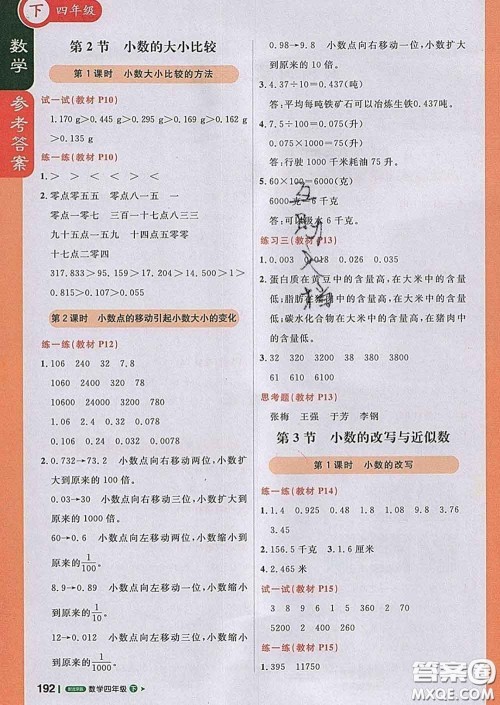 下 四年级
数学
参考答案
第2节 小数的大小比较
第1课时 小数大小比较的方法
试一试(教材 P10)
1.170 g>0.445 g>0.295 g>0.169 g>0.162 g
>0.135 g
练一练(教材 P10)
1.> > < > < =
2.零点零五五 零点零六 一百点零六
零点一零七 三百一十七点八三三
九十五点一五一 九点五一五
十七点二零四
317.833>95.159>17.204>14.500>1>
0.107>0.055
第2课时 小数点的移动引起小数大小的变化
练一练(教材 P12)
1.106 240 32 8 7.2
1060 2400 320 80 72
10600 24000 3200 800 720
2.0.732→73.2 小数点向右移动两位,小数扩
大到原来的100倍。
小数点向右移动三位,小数扩大到
原来的1000倍。
60→0.6 小数点向左移动两位,小数缩小
到原来的1/100。
8.9→0.89 小数点向左移动一位,小数缩小
到原来的1/10。
12→0.012 小数点向左移动三位,小数缩
小到原来的1/1000。
192 数学四年级 下
0.98→9.8 小数点向右移动一位,小数扩
大到原来的10倍。
3.4.37÷10=0.437(吨)
答:平均每吨铁矿石可以冶炼生铁0.437吨。
4.7.5÷100=0.075(升)
0.075×1000=75(升)
答:行驶1000千米耗油75升。
5.60×100=6000(克)
6000克=6千克
答:可以 水6千克。
练习三(教材 P13)
1.0.003 0.018 0.023 0.026
2.蛋白质在黄豆中的含量高,在大米中的含量
低;脂肪在 中的含量高,在大米中的含量
低;碳水化合物在大米中的含量高,在猪肉中
的含量低。
3.32 320 3200 380 3800
61 610 6100
思考题(教材 P13)
张梅 王强 于芳 李钢
第3节 小数的改写与近似数
第1课时 小数的改写
练一练(教材 P14)
1.1.4 0.925 0.48 1.8 0.08 9.08
3.45
2.156.5千克 3.1.6厘米
试一试(教材 P15)
3 8 9 6 1 5 360
5200 30 2 4
练一练(教材 P15)
1.395 11750
答案圈
MXQE.COM